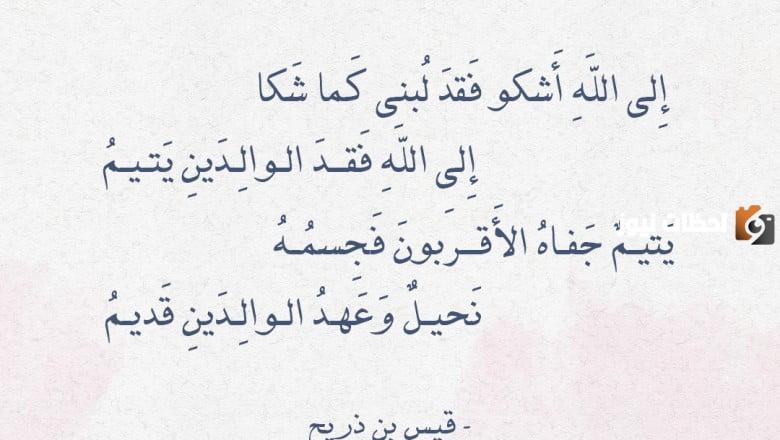 إِلى اللَّهِ أَشكو فَقدَ لُبنى كَما شَكا
إِلى اللَّهِ فَقدَ الوالِدَينِ يَتيمُ
لحظات نيوز
يَتيمٌ جَفاهُ الأَقرَبونَ فَجِسمُهُ
نَحيلٌ وَعَهدُ الوالِدَينِ قَديمُ
- قيس بن ذريح